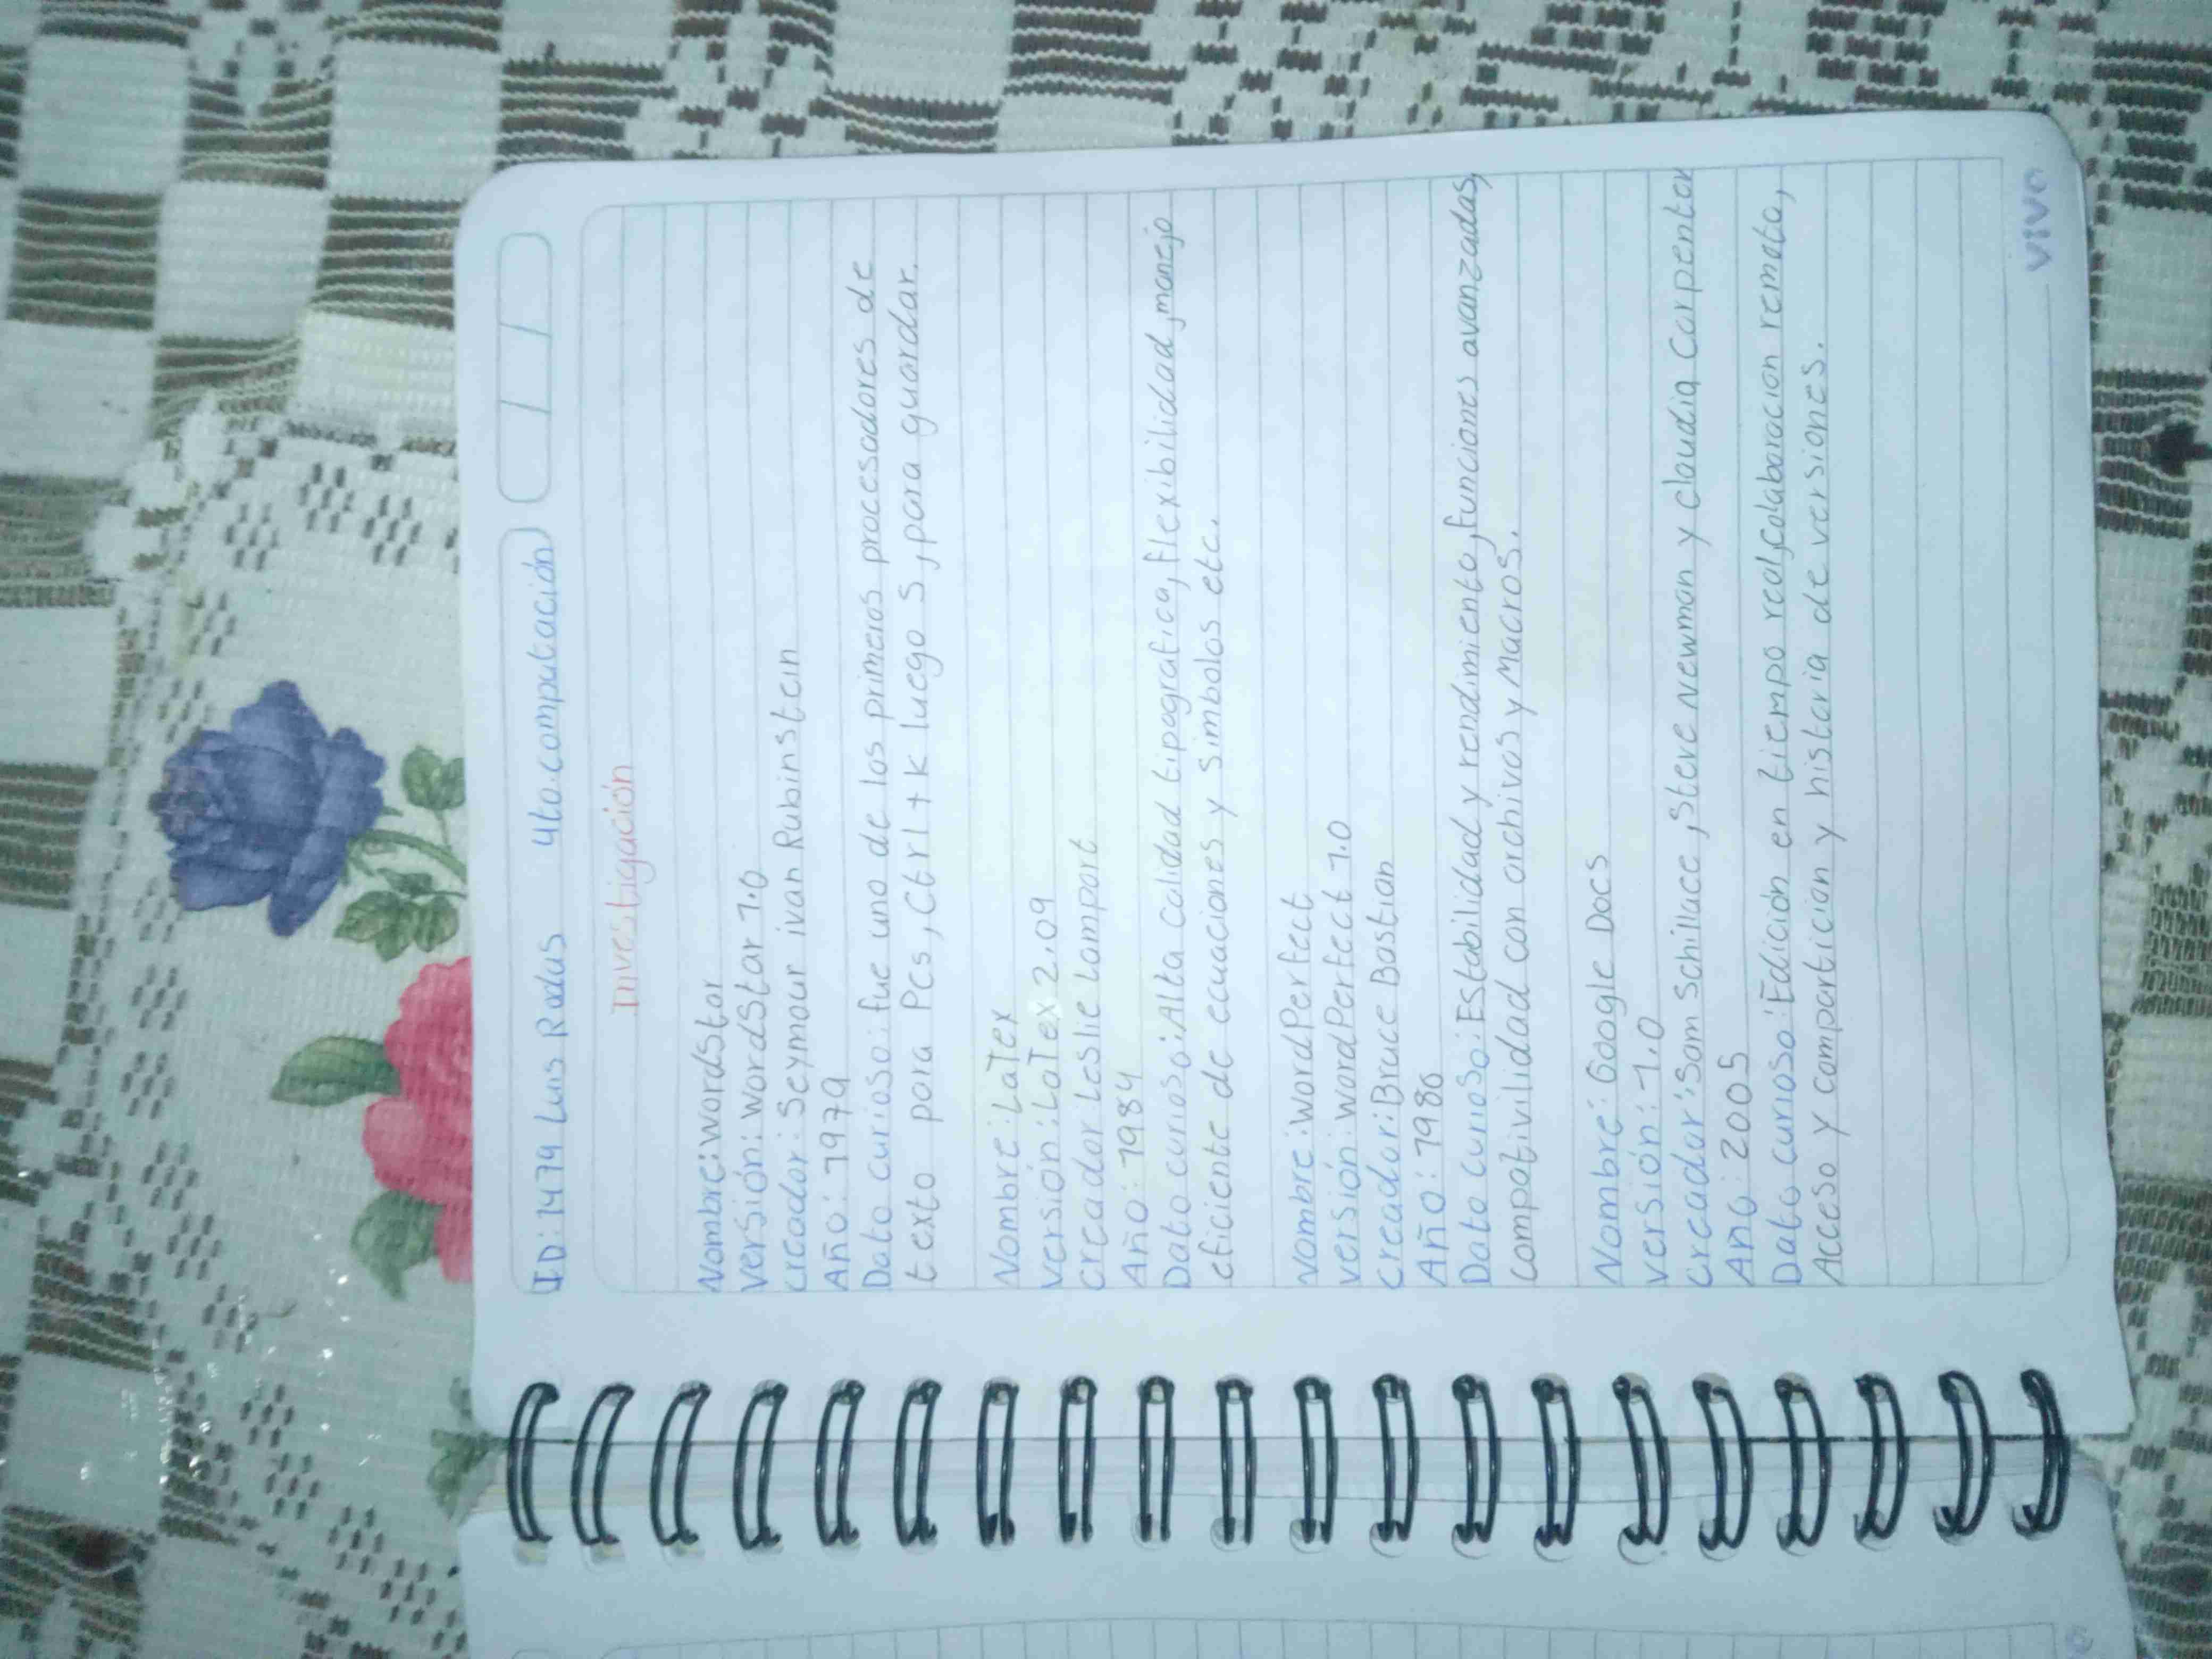 ID: 1479 Luis Rodas 4to. computación
Investigación
Nombre: WordStar
Versión: WordStar 1.0
creador: Seymour ivan Rubinstein
Año: 1979
Dato curioso: fue uno de los primeros procesadores de
texto para Pcs, Ctrl + K luego S, para guardar.
Nombre: LaTex
Versión: LaTex 2.09
creador: Leslie Lamport
Año: 1984
Dato curioso: Alta calidad tipografica, flexibilidad, manejo
eficiente de ecuaciones y simbolos etc.
Nombre: WordPerfect
versión: wordPerfect 1.0
creador: Bruce Bastian
Año: 1980
Dato curioso: Estabilidad y rendimiento, funciones avanzadas,
compativilidad con archivos y Macros.
Nombre: Google Docs
versión: 1.0
creador: Sam Schillace, Steve Newman y claudia Carpenter
Año: 2005
Dato curioso: Edición en tiempo real, colaboracion remata,
Acceso y comparticion y historia de versiones.
VIVO